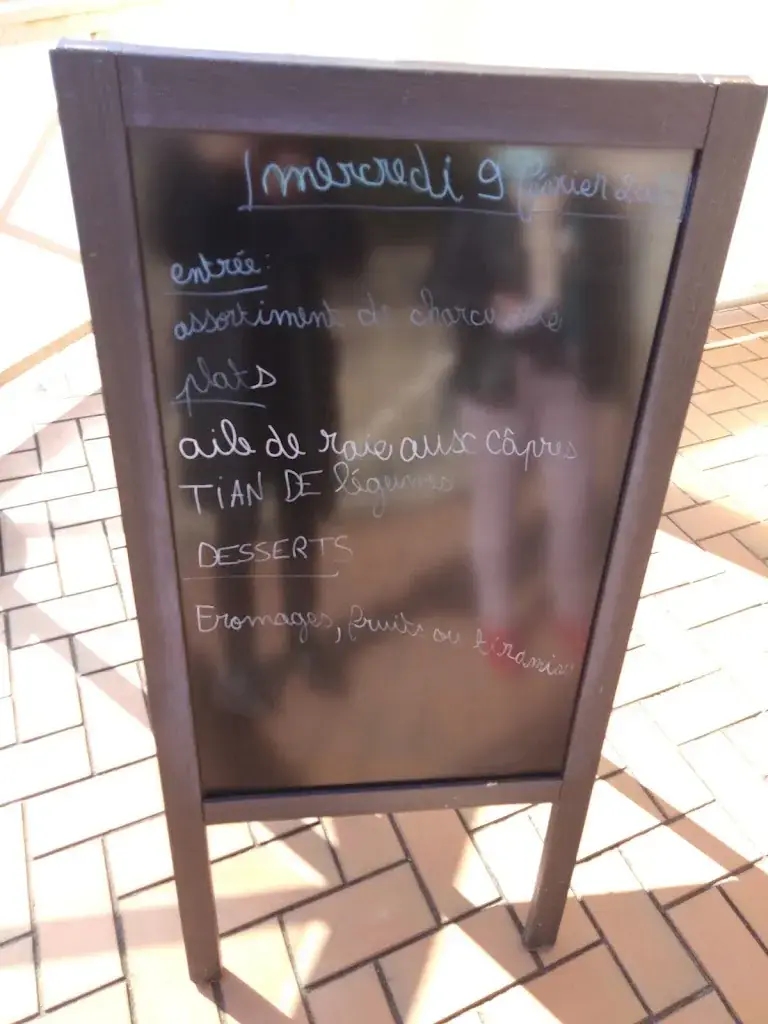 mercredi 9 février
entrée:
assortiment de charcuterie
plats
aile de raie aux câpres
TIAN DE légumes
DESSERTS
Fromages, fruits ou tiramisu